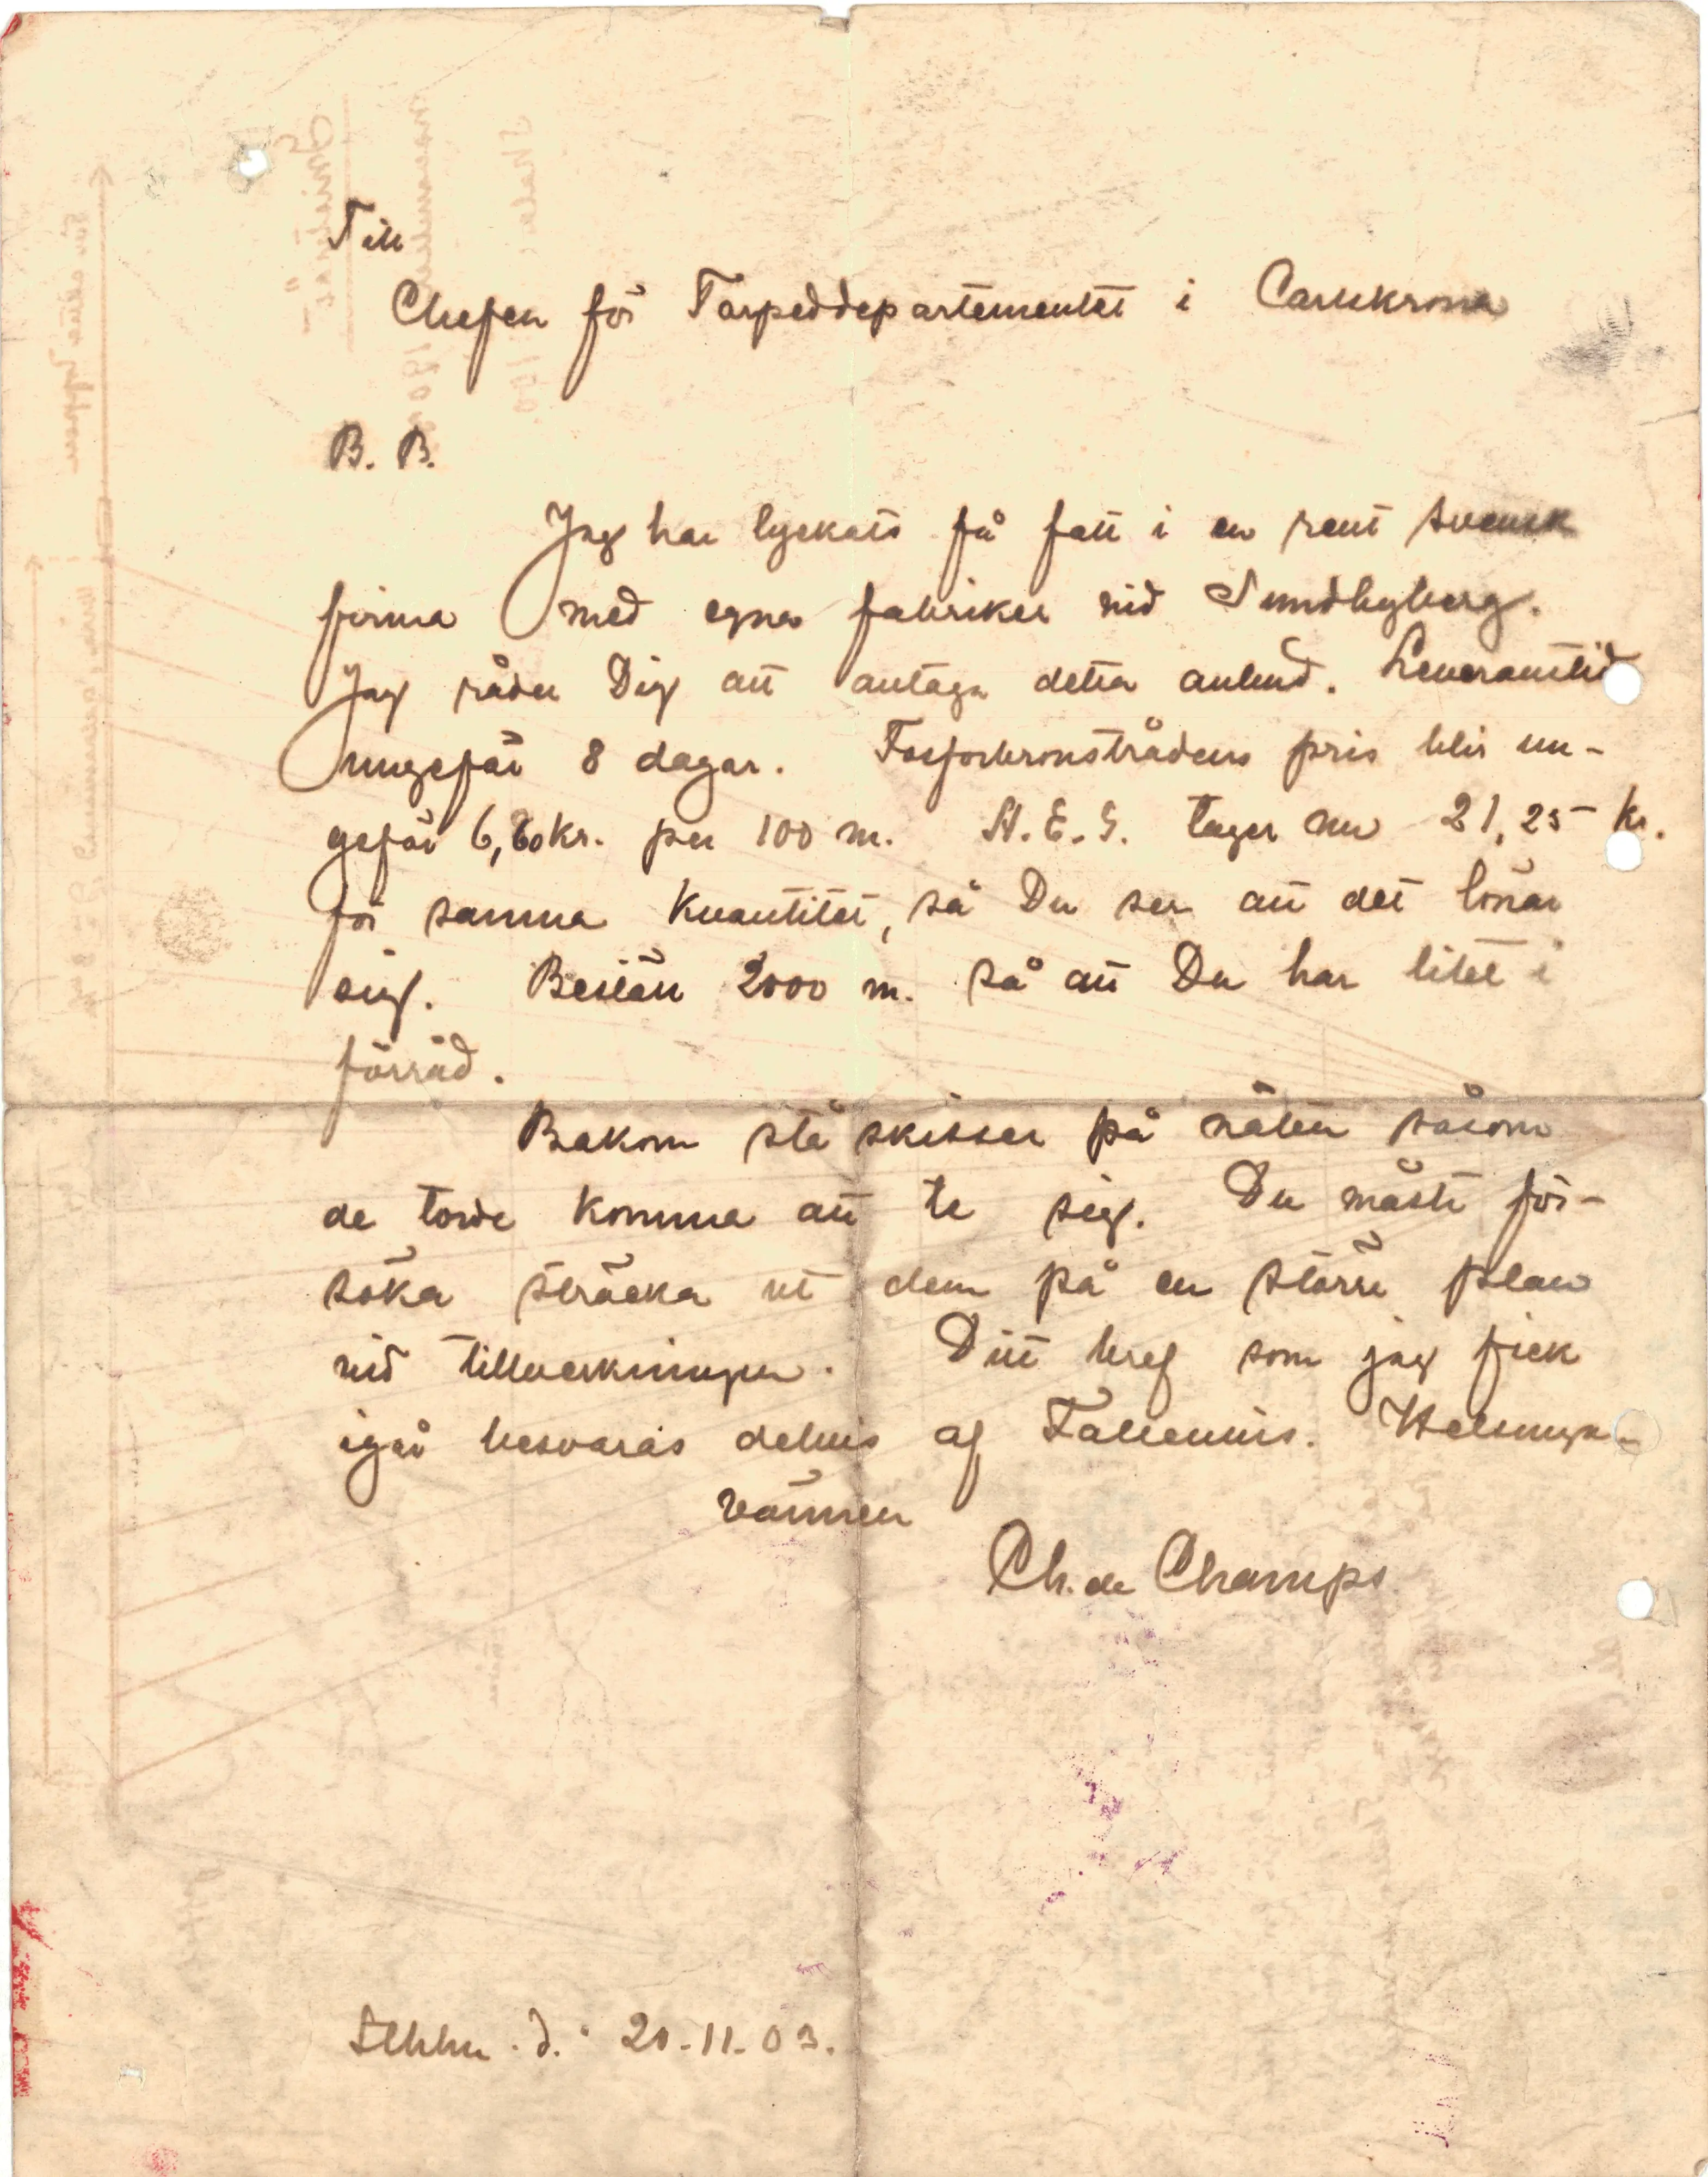 Till
Chefen för Torpeddepartementet i Carlskrona
B. B.
Jag har lyckats få fatt i en rent svensk
firma med egna fabriker vid Sundbyberg.
Jag råder Dig att antaga detta anbud. Leveranstid
ungefär 8 dagar. Fosforbronstrådens pris blir un-
gefär 6,60 kr. per 100 m. A.E.G. tager nu 21,25 kr.
för samma kvantitet, så Du ser att det lönar
sig. Beställ 2000 m. så att Du har litet i
förråd.
Bakom stå skisser på näten såsom
de torde komma att te sig. Du måste för-
söka sträcka ut dem på en större plan
vid tillverkningen. Ditt bref som jag fick
igår besvaras delvis af
vännen
Ch. de Champs
Sthlm. d. 20-11-03.